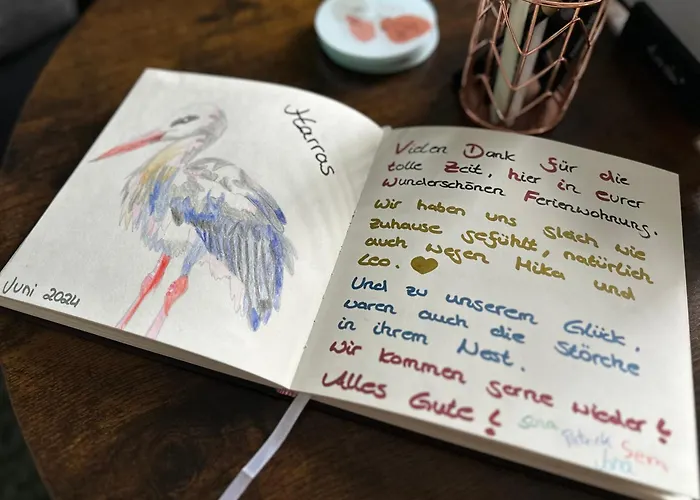 Harras
Juni 2024
Vielen Dank für die
tolle Zeit, hier in eurer
wunderschönen Ferienwohnung.
Wir haben uns gleich wie
zuhause gefühlt, natürlich
auch wegen Mika und
Leo.
Und zu unserem Glück,
waren auch die Störche
in ihrem Nest.
Wir kommen gerne wieder!
Alles Gute!
Patrick Sem